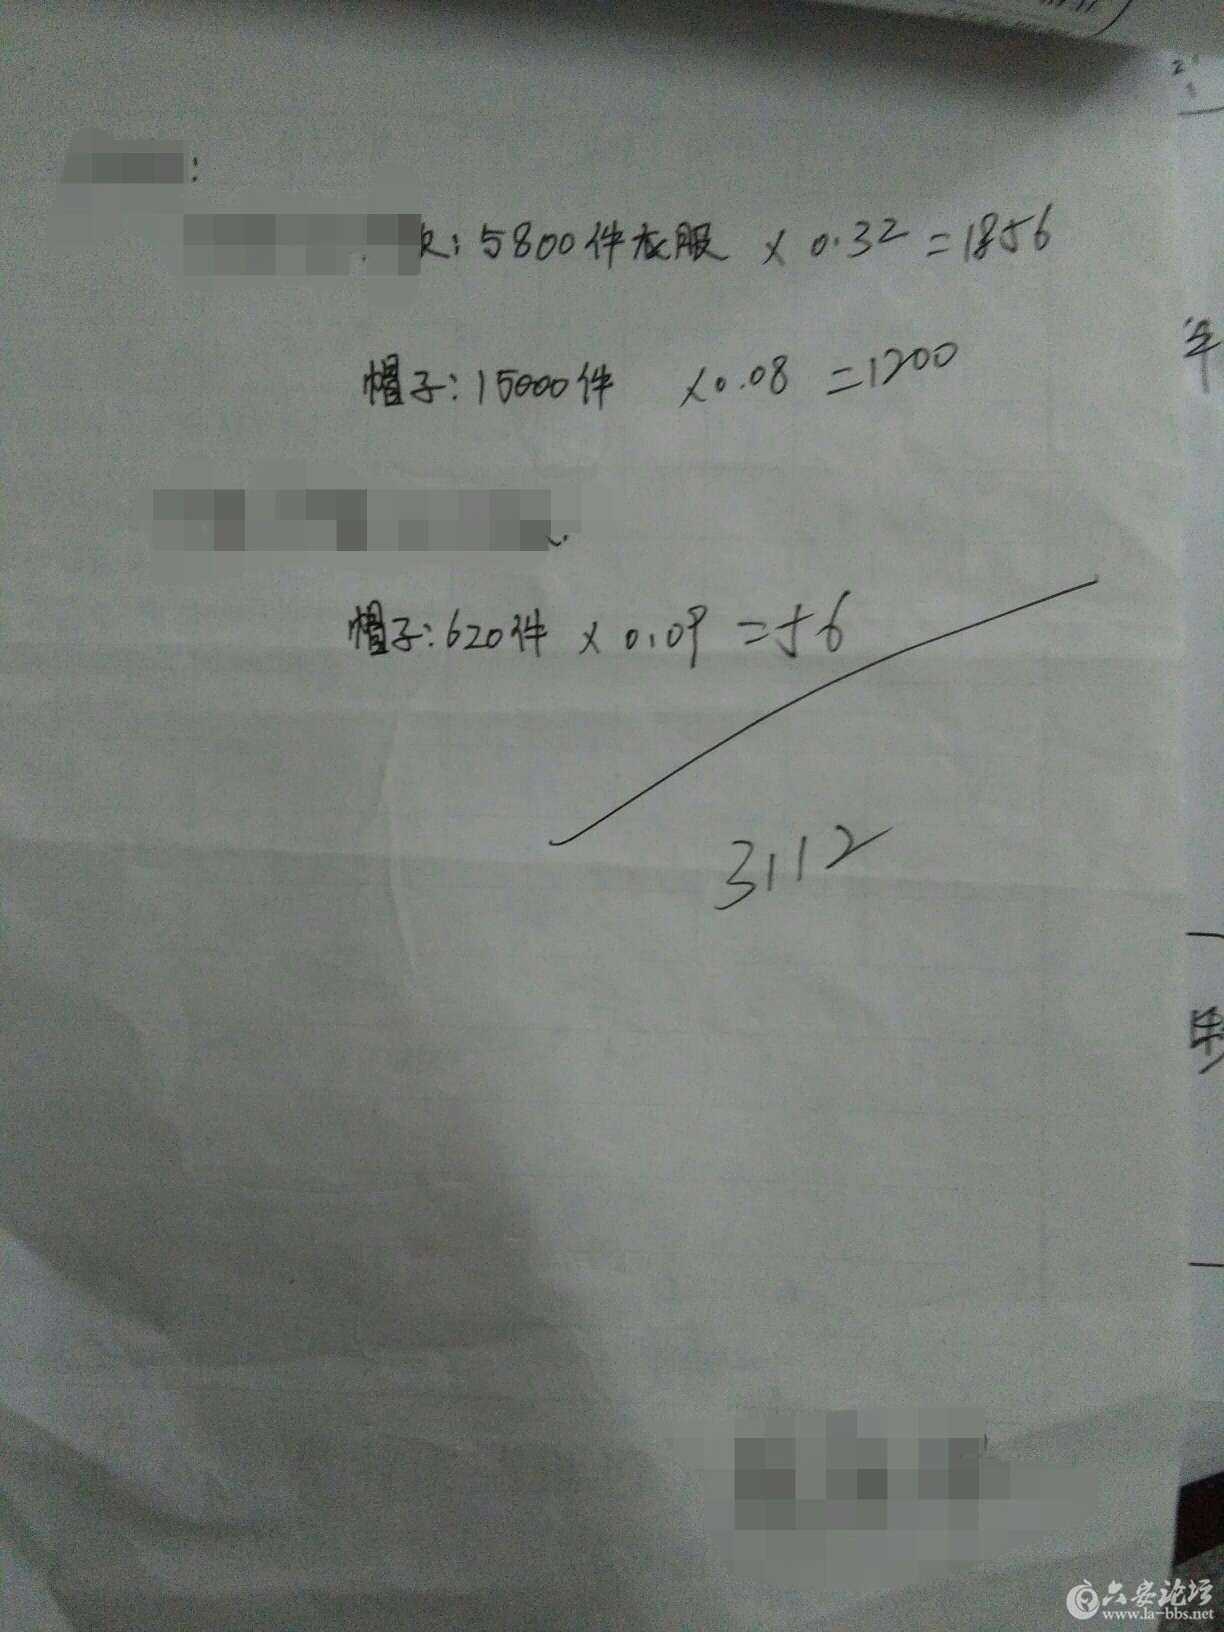 :
次: 5800件衣服 × 0.32 = 1856
帽子: 15000件 ×0.08 =1200
帽子: 620件 × 0.09 = 56
3112
六安论坛
www.la-bbs.net